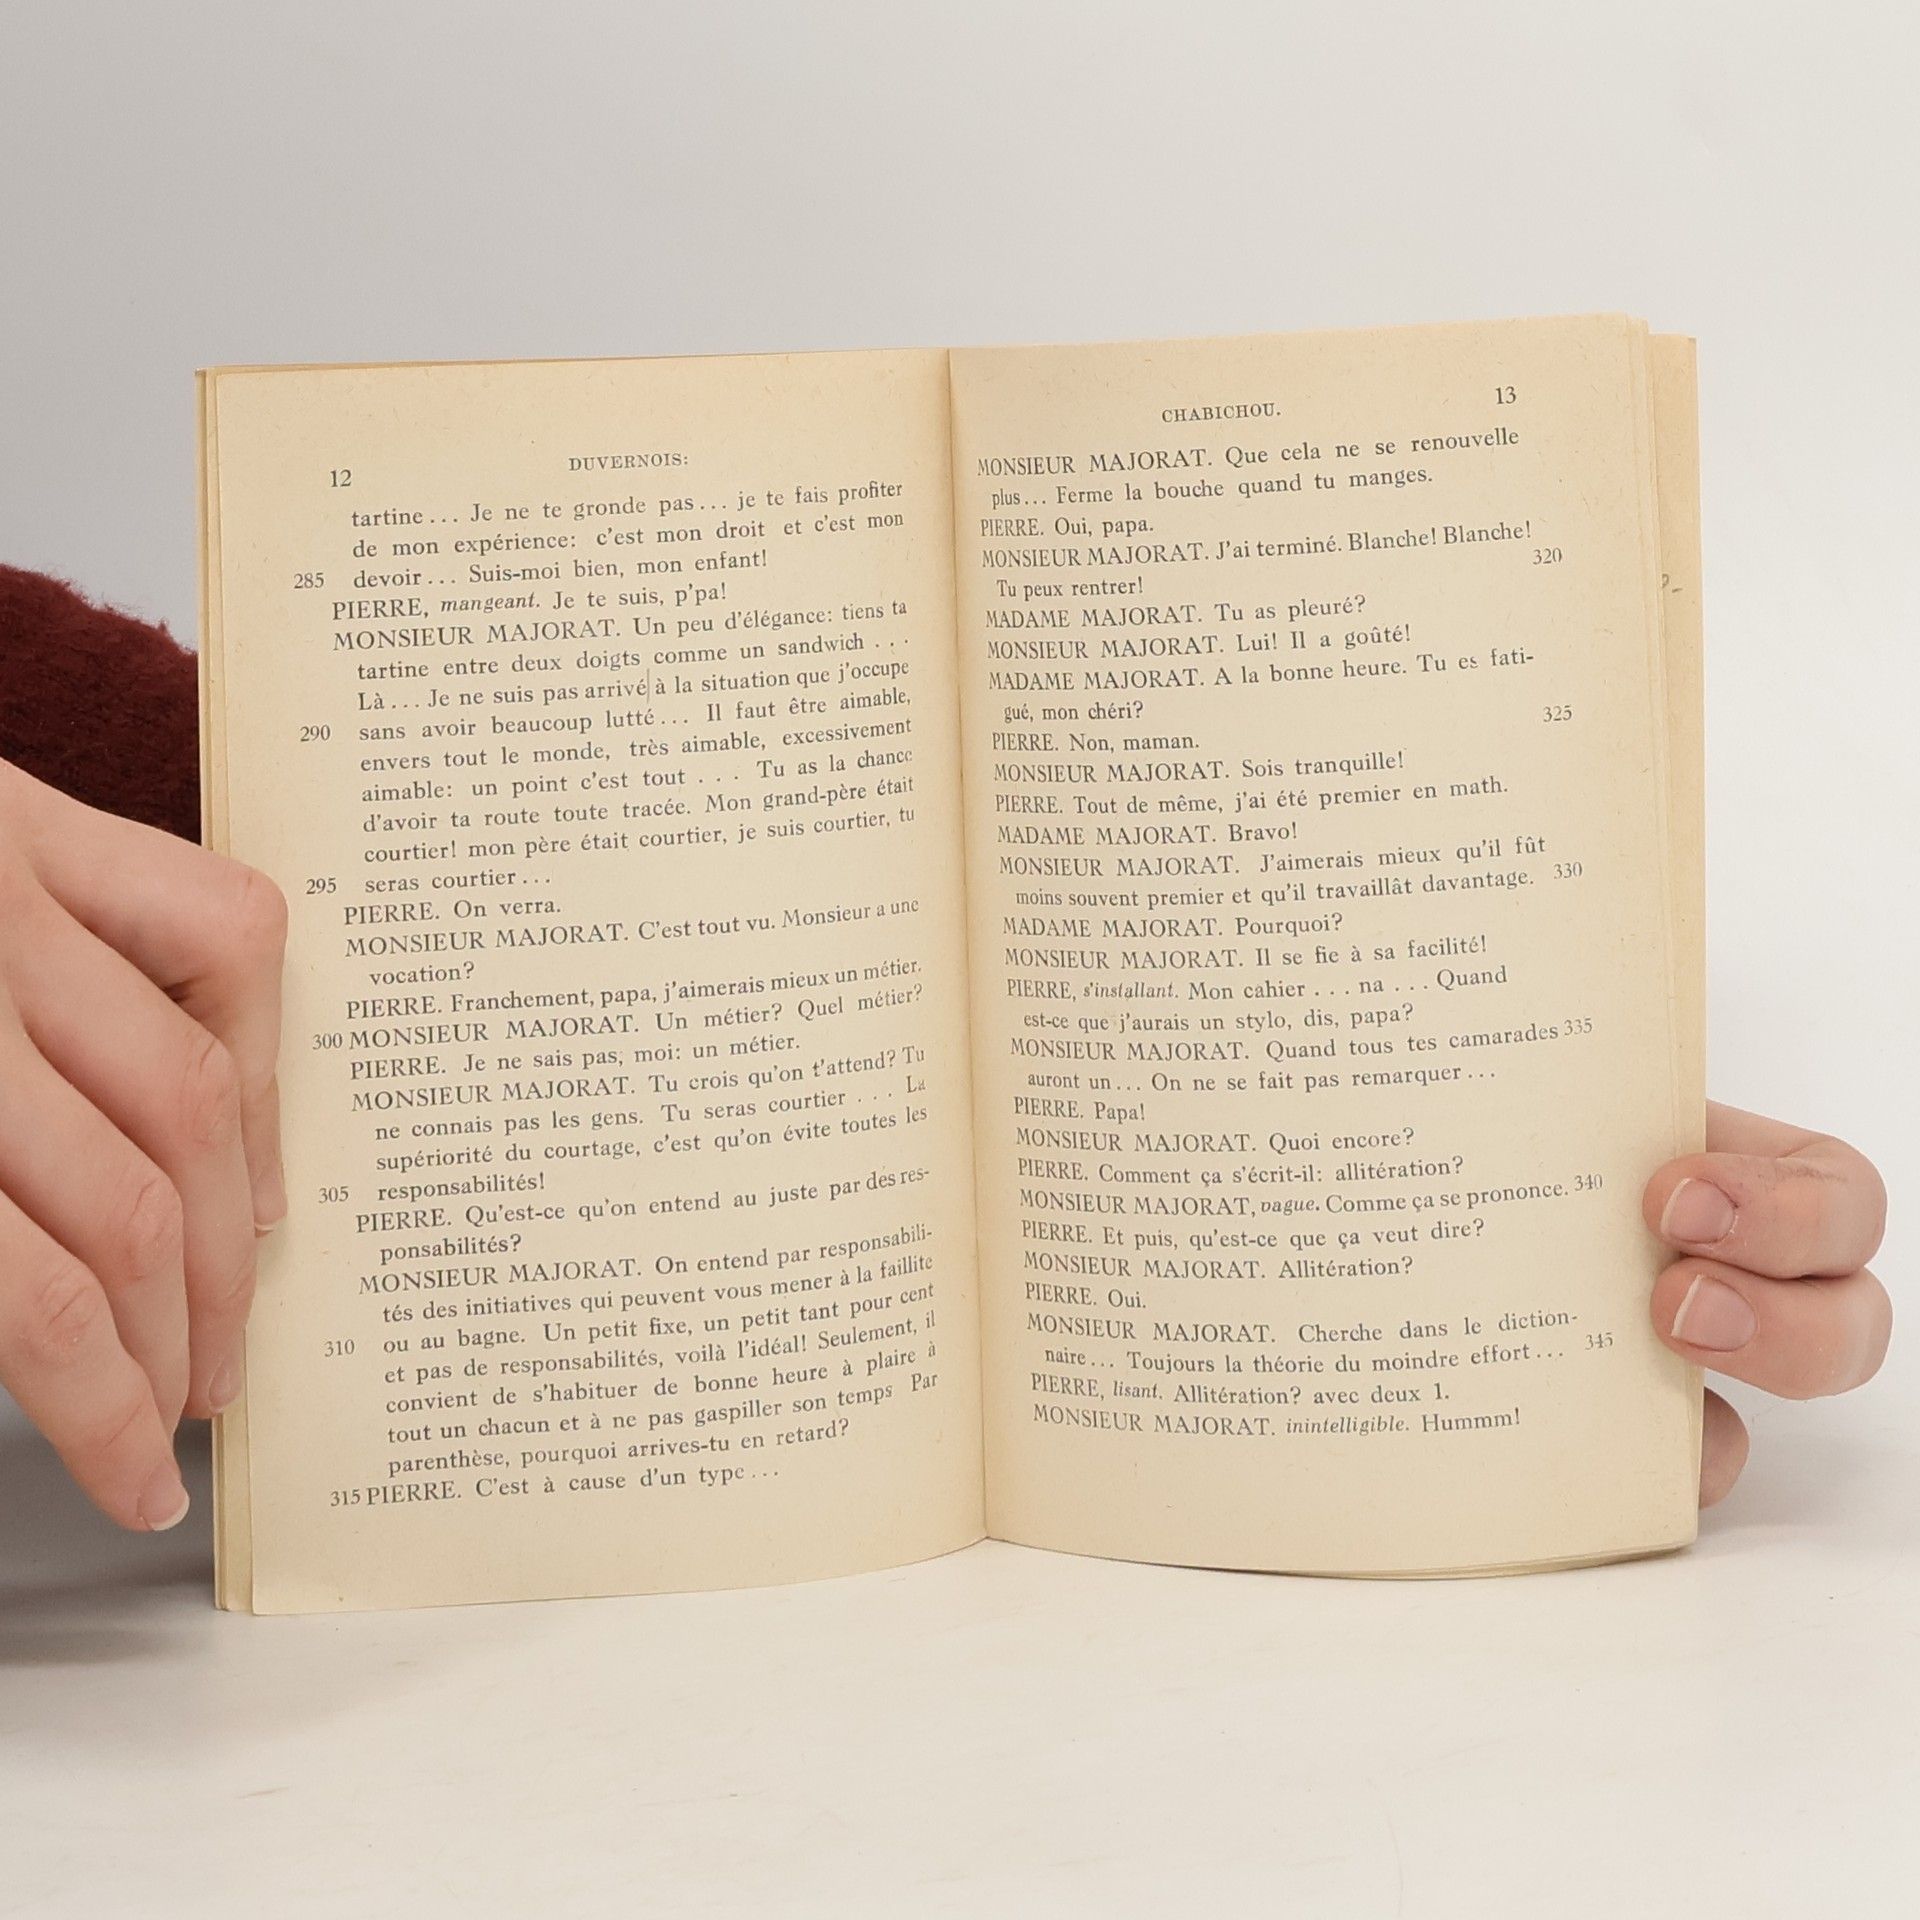 12
DUVERNOIS:
tartine... Je ne te gronde pas... je te fais profiter
de mon expérience: c'est mon droit et c'est mon
285 devoir... Suis-moi bien, mon enfant!
PIERRE, mangeant. Je te suis, p'pa!
MONSIEUR MAJORAT. Un peu d'élégance: tiens ta
tartine entre deux doigts comme un sandwich . . .
Là... Je ne suis pas arrivé à la situation que j'occupe
290 sans avoir beaucoup lutté... Il faut être aimable,
envers tout le monde, très aimable, excessivement
aimable: un point c'est tout . . . Tu as la chance
d'avoir ta route toute tracée. Mon grand-père était
courtier! mon père était courtier, je suis courtier, tu
295 seras courtier...
PIERRE. On verra.
MONSIEUR MAJORAT. C'est tout vu. Monsieur a une
vocation?
PIERRE. Franchement, papa, j'aimerais mieux un métier.
300 MONSIEUR MAJORAT. Un métier? Quel métier?
PIERRE. Je ne sais pas, moi: un métier.
MONSIEUR MAJORAT. Tu crois qu'on t'attend? Tu
ne connais pas les gens. Tu seras courtier . . . La
supériorité du courtage, c'est qu'on évite toutes les
305 responsabilités!
PIERRE. Qu'est-ce qu'on entend au juste par des res-
ponsabilités?
MONSIEUR MAJORAT. On entend par responsabili-
tés des initiatives qui peuvent vous mener à la faillite
310 ou au bagne. Un petit fixe, un petit tant pour cent
et pas de responsabilités, voilà l'idéal! Seulement, il
convient de s'habituer de bonne heure à plaire à
tout un chacun et à ne pas gaspiller son temps Par
parenthèse, pourquoi arrives-tu en retard?
315 PIERRE. C'est à cause d'un type...
CHABICHOU.
13
MONSIEUR MAJORAT. Que cela ne se renouvelle
plus... Ferme la bouche quand tu manges.
PIERRE. Oui, papa.
MONSIEUR MAJORAT. J'ai terminé. Blanche! Blanche!
Tu peux rentrer! 320
MADAME MAJORAT. Tu as pleuré?
MONSIEUR MAJORAT. Lui! Il a goûté!
MADAME MAJORAT. A la bonne heure. Tu es fati-
gué, mon chéri?
PIERRE. Non, maman. 325
MONSIEUR MAJORAT. Sois tranquille!
PIERRE. Tout de même, j'ai été premier en math.
MADAME MAJORAT. Bravo!
MONSIEUR MAJORAT. J'aimerais mieux qu'il fût
moins souvent premier et qu'il travaillât davantage. 330
MADAME MAJORAT. Pourquoi?
MONSIEUR MAJORAT. Il se fie à sa facilité!
PIERRE, s'installant. Mon cahier . . . na . . . Quand
est-ce que j'aurais un stylo, dis, papa?
MONSIEUR MAJORAT. Quand tous tes camarades 335
auront un... On ne se fait pas remarquer...
PIERRE. Papa!
MONSIEUR MAJORAT. Quoi encore?
PIERRE. Comment ça s'écrit-il: allitération?
MONSIEUR MAJORAT, vague. Comme ça se prononce. 340
PIERRE. Et puis, qu'est-ce que ça veut dire?
MONSIEUR MAJORAT. Allitération?
PIERRE. Oui.
MONSIEUR MAJORAT. Cherche dans le diction-
naire... Toujours la théorie du moindre effort... 345
PIERRE, lisant. Allitération? avec deux l.
MONSIEUR MAJORAT. inintelligible. Hummm!